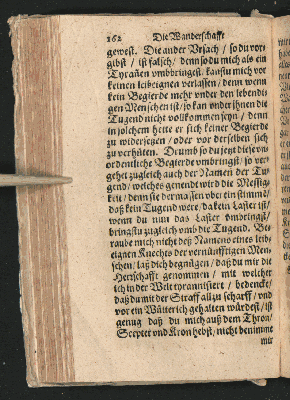 162 Die Wanderschafft
gewest. Die ander Vrsach / so du vor
gibst / ist falsch / denn so du mich als ein
Tyrañen vmbbringest, kanstu mich vor
keinen leibeignen verlassen / denn wenn
kein Begierde mehr vnter den lebendi
gen Menschen ist / so kan vnter ihnen die
Tugend nicht vollkommen seyn / denn
in solchem hette er sich keiner Begierde
zu widersetzen / oder vor derselben sich
zu verhüten. Drumb so du jetzt diese vn
ordentliche Begierde vmbringst / so ver
gehet zugleich auch der Namen der Tu
gend / welches genendt wird die Messig
keit / denn sie dermassen vber ein stimmē /
daß kein Tugend were / da kein Laster ist /
wenn du nun das Laster vmbringst /
bringstu zugleich vmb die Tugend. Be
raube mich nicht deß Namens eines leib
eignen Knechts der vernünfftigen Men
schen / laß dich begnügen / daß du mir die
Herrschafft genommen / mit welcher
ich in der Welt tyrannisiert / bedenck /
daß du mit der Straff allzu scharff / vnd
vor ein Wüterich gehalten würdest / ist
genug daß du mich auß dem Thron /
Scepter vnd Kron hebst / nicht benimme
mir